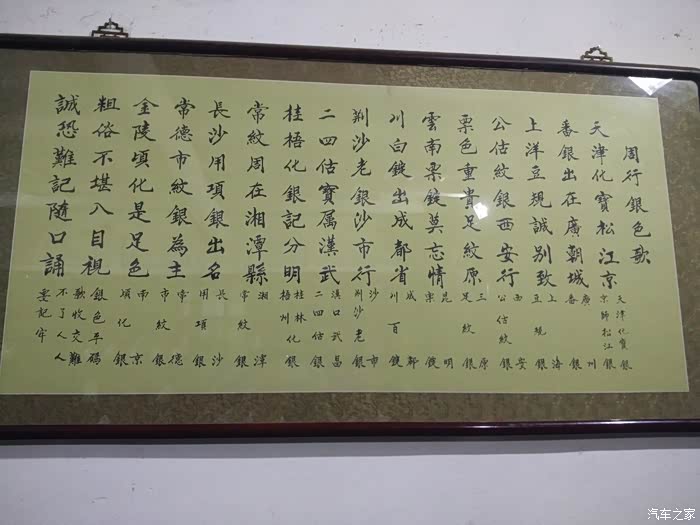 周行銀色歌
天津化寶松江京
天津化寶銀
京師松江銀
番銀出在廣朝城
廣州
番銀
上洋豆規誠別致
上海
豆規銀
公估紋銀西安行
西安
公估紋銀
票色重貴足紋原
三原
足紋銀
雲南票錠莫忘情
昆明
票錠
川白錠出成都省
成都
川百錠
荆沙老銀沙市行
沙市
荆沙老銀
二四估寶屬漢武
漢口武昌
二四估銀
桂梧化銀記分明
桂林化
梧州化銀
常紋周在湘潭縣
湘潭
常紋銀
長沙用項銀出名
長沙
用項銀
常德市紋銀為主
常德
市紋銀
金陵頃化是足色
南京
頃化銀
粗俗不堪入目視
銀色平碼
歌收交難
誠恐難記隨口誦
不了人人
要記牢
汽车之家